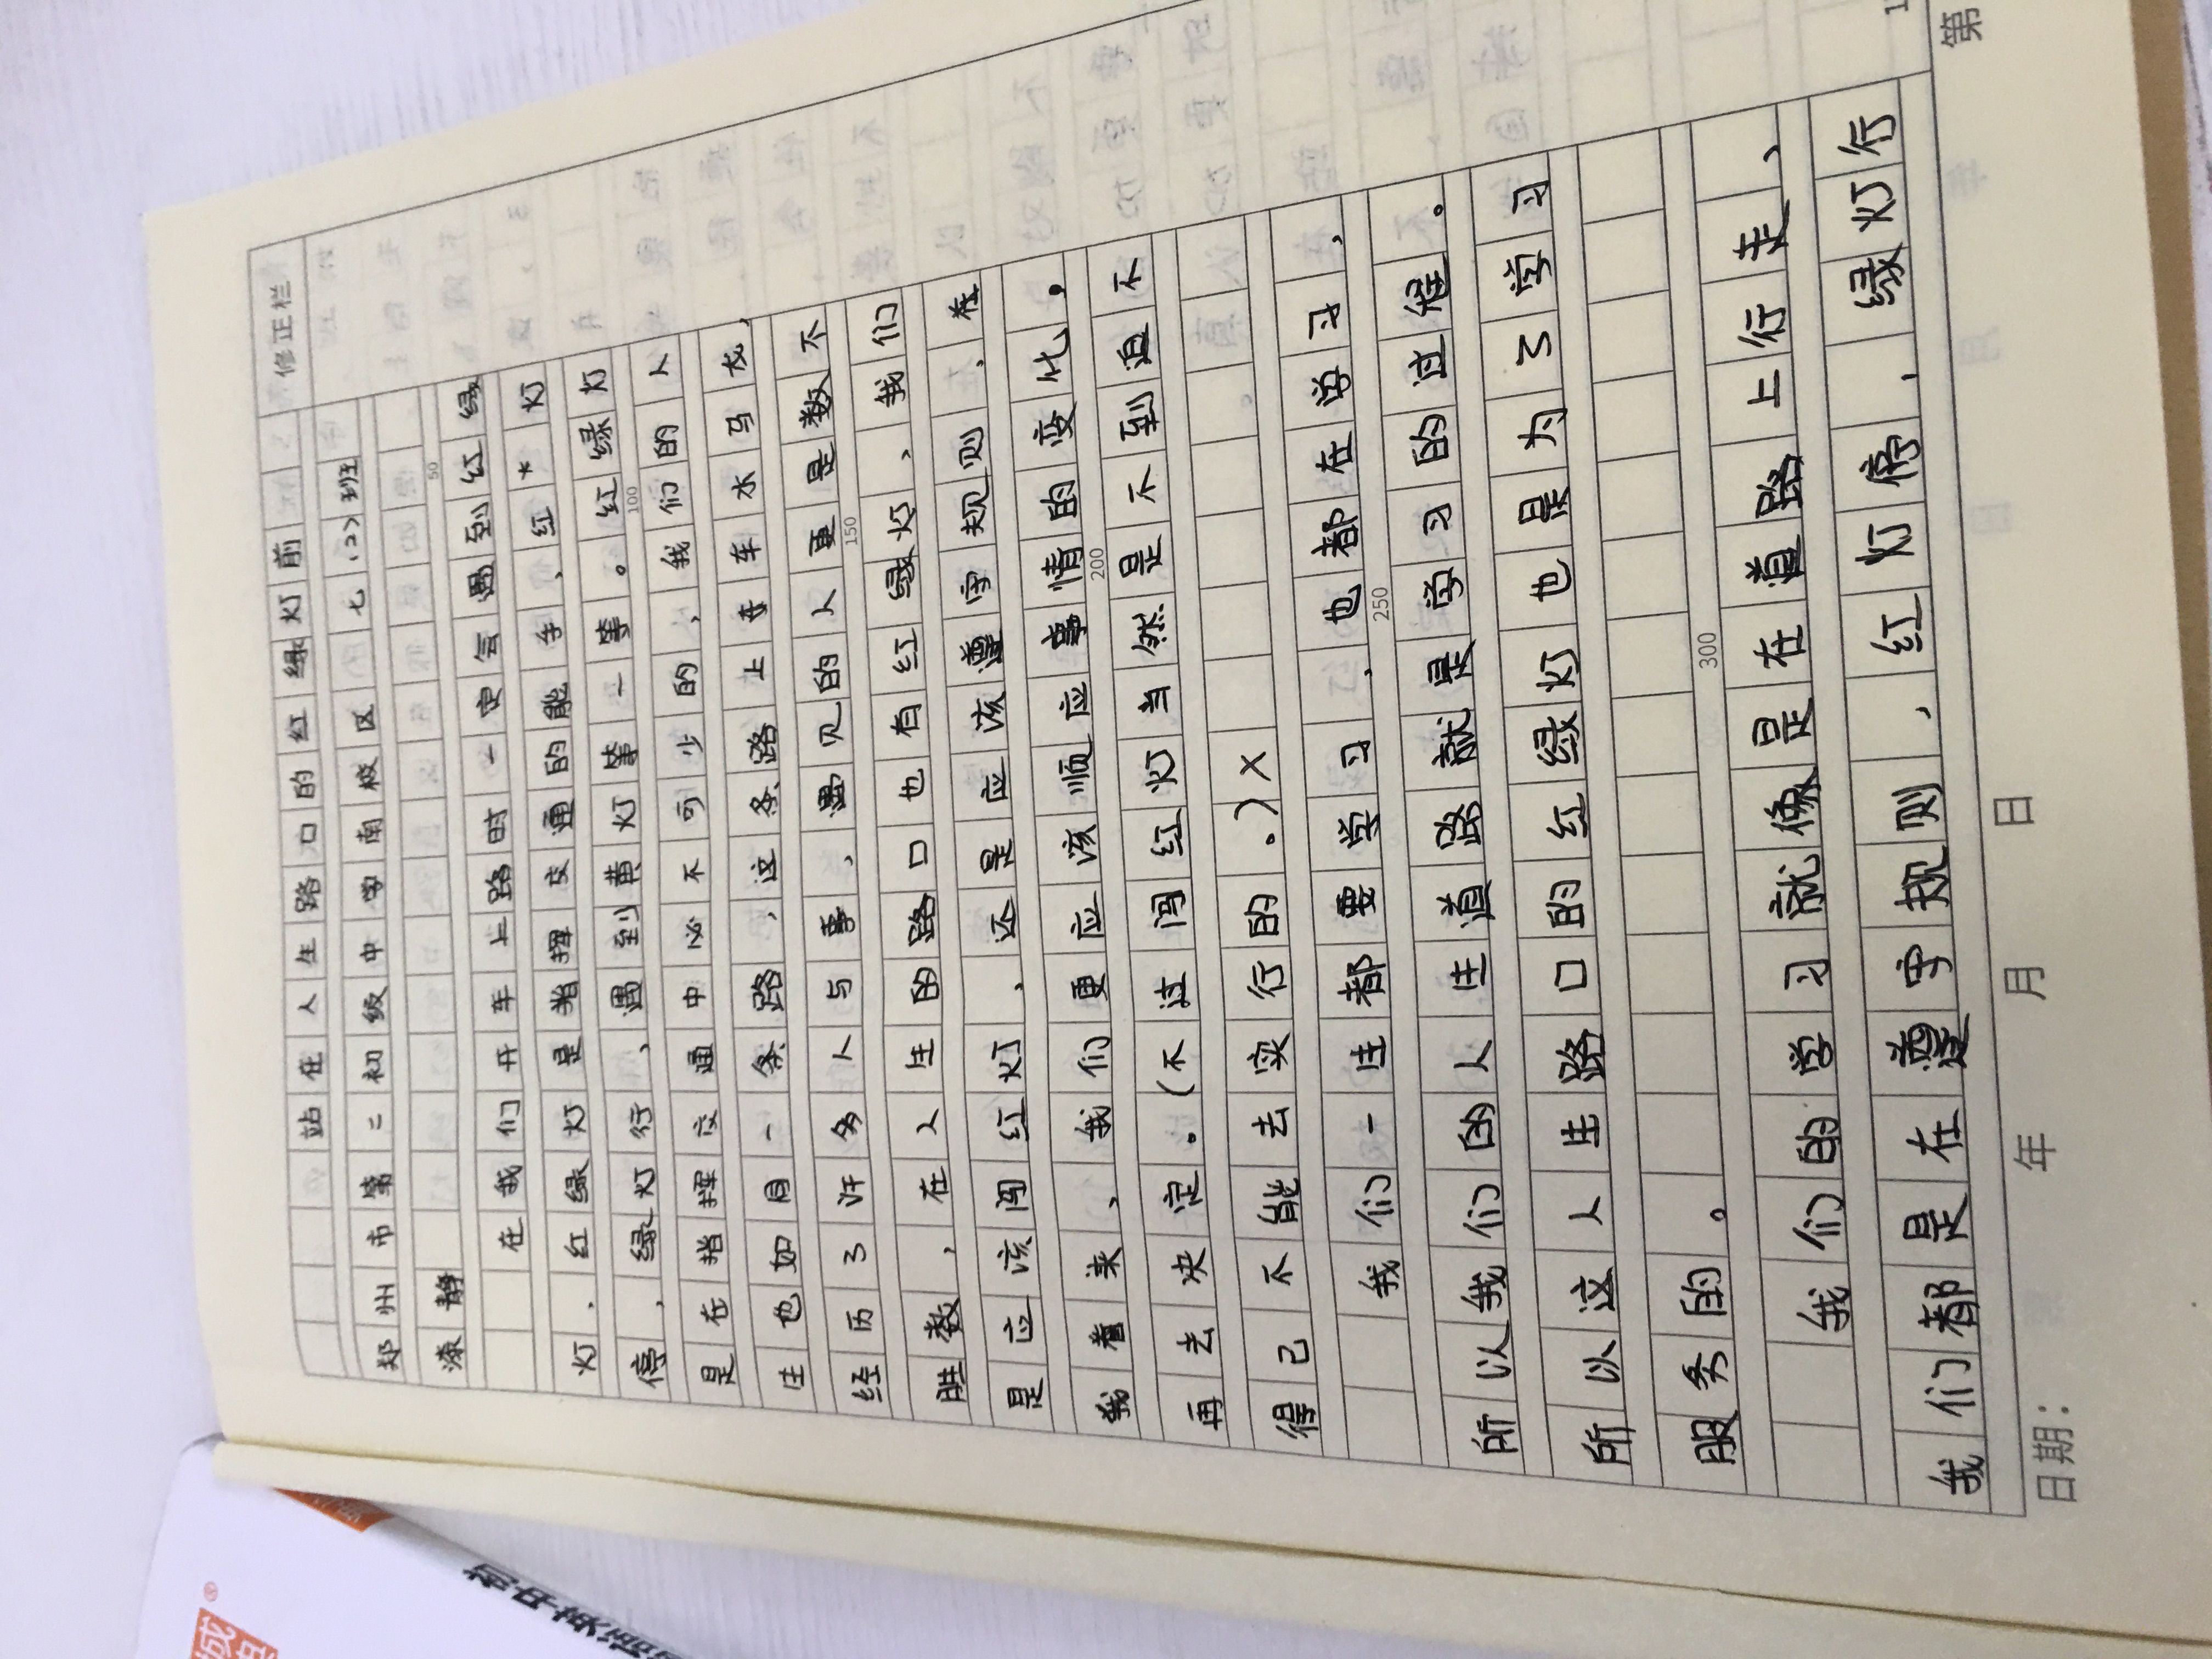 修正栏
站在人生路口的红绿灯前
郑州市第二初级中学南校区 七.(2)班
漆静
50
在我们开车上路时一定会遇到红绿
灯.红绿灯是指挥交通的能手、红*灯
停,绿灯行、遇到黄灯等一等。红绿灯
100
是在指挥交通中必不可少的,我们的人
生也如同一条路,这条路上车水马龙,
经历了许多人与事、遇见的人更是数不
150
胜数,在人生的路口也有红绿灯、我们
是应该闯红灯、还是应该遵守规则、在
我看来、我们更应该顺应事情的变化。
200
再去决定。(不过闯红灯当然是不到迫不
得已不能去实行的。)X
我们一生都要学习.也都在学习,
250
所以我们的人生道路就是学习的过程。
所以这人生路口的红绿灯也是为了学习
服务的。
300
我们的学习就像是在道路上行走、
我们都是在遵守规则,红灯停.绿灯行
日期: 年 月 日
第